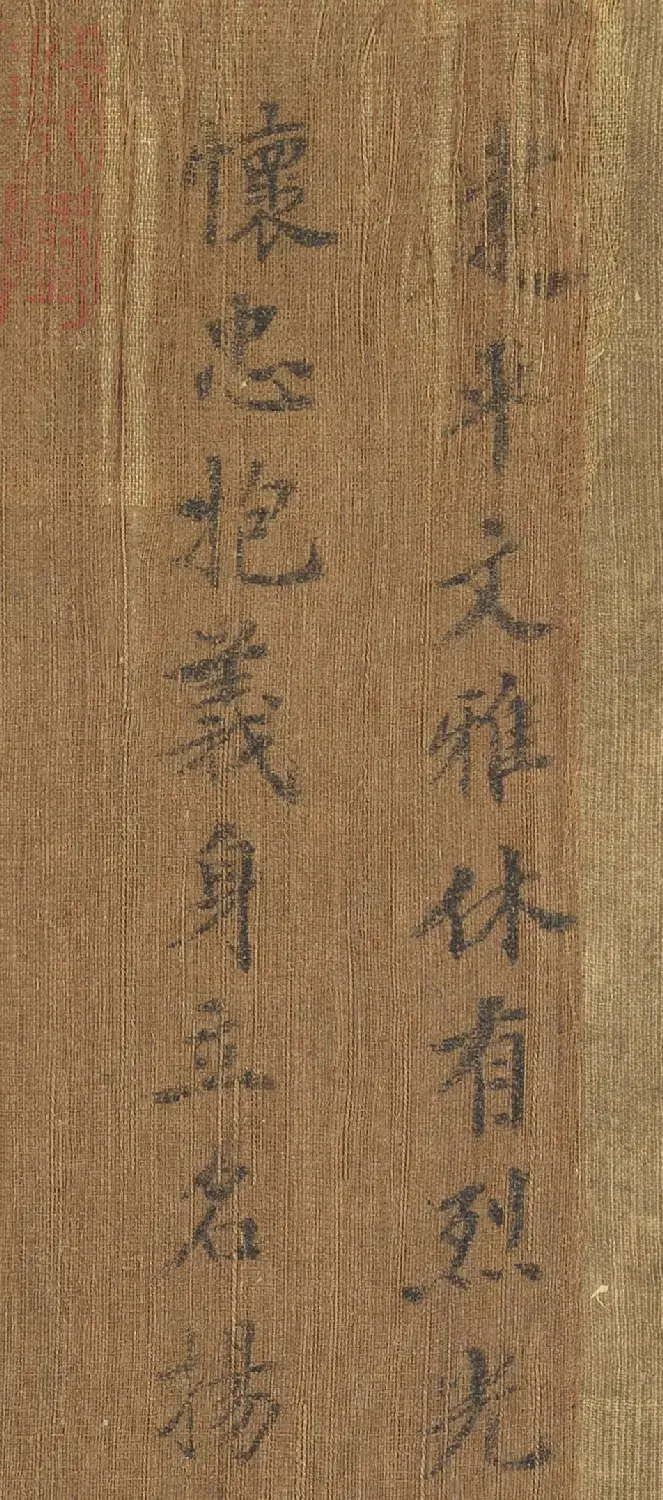 斗文雅休有烈光
懷忠抱義身立名揚